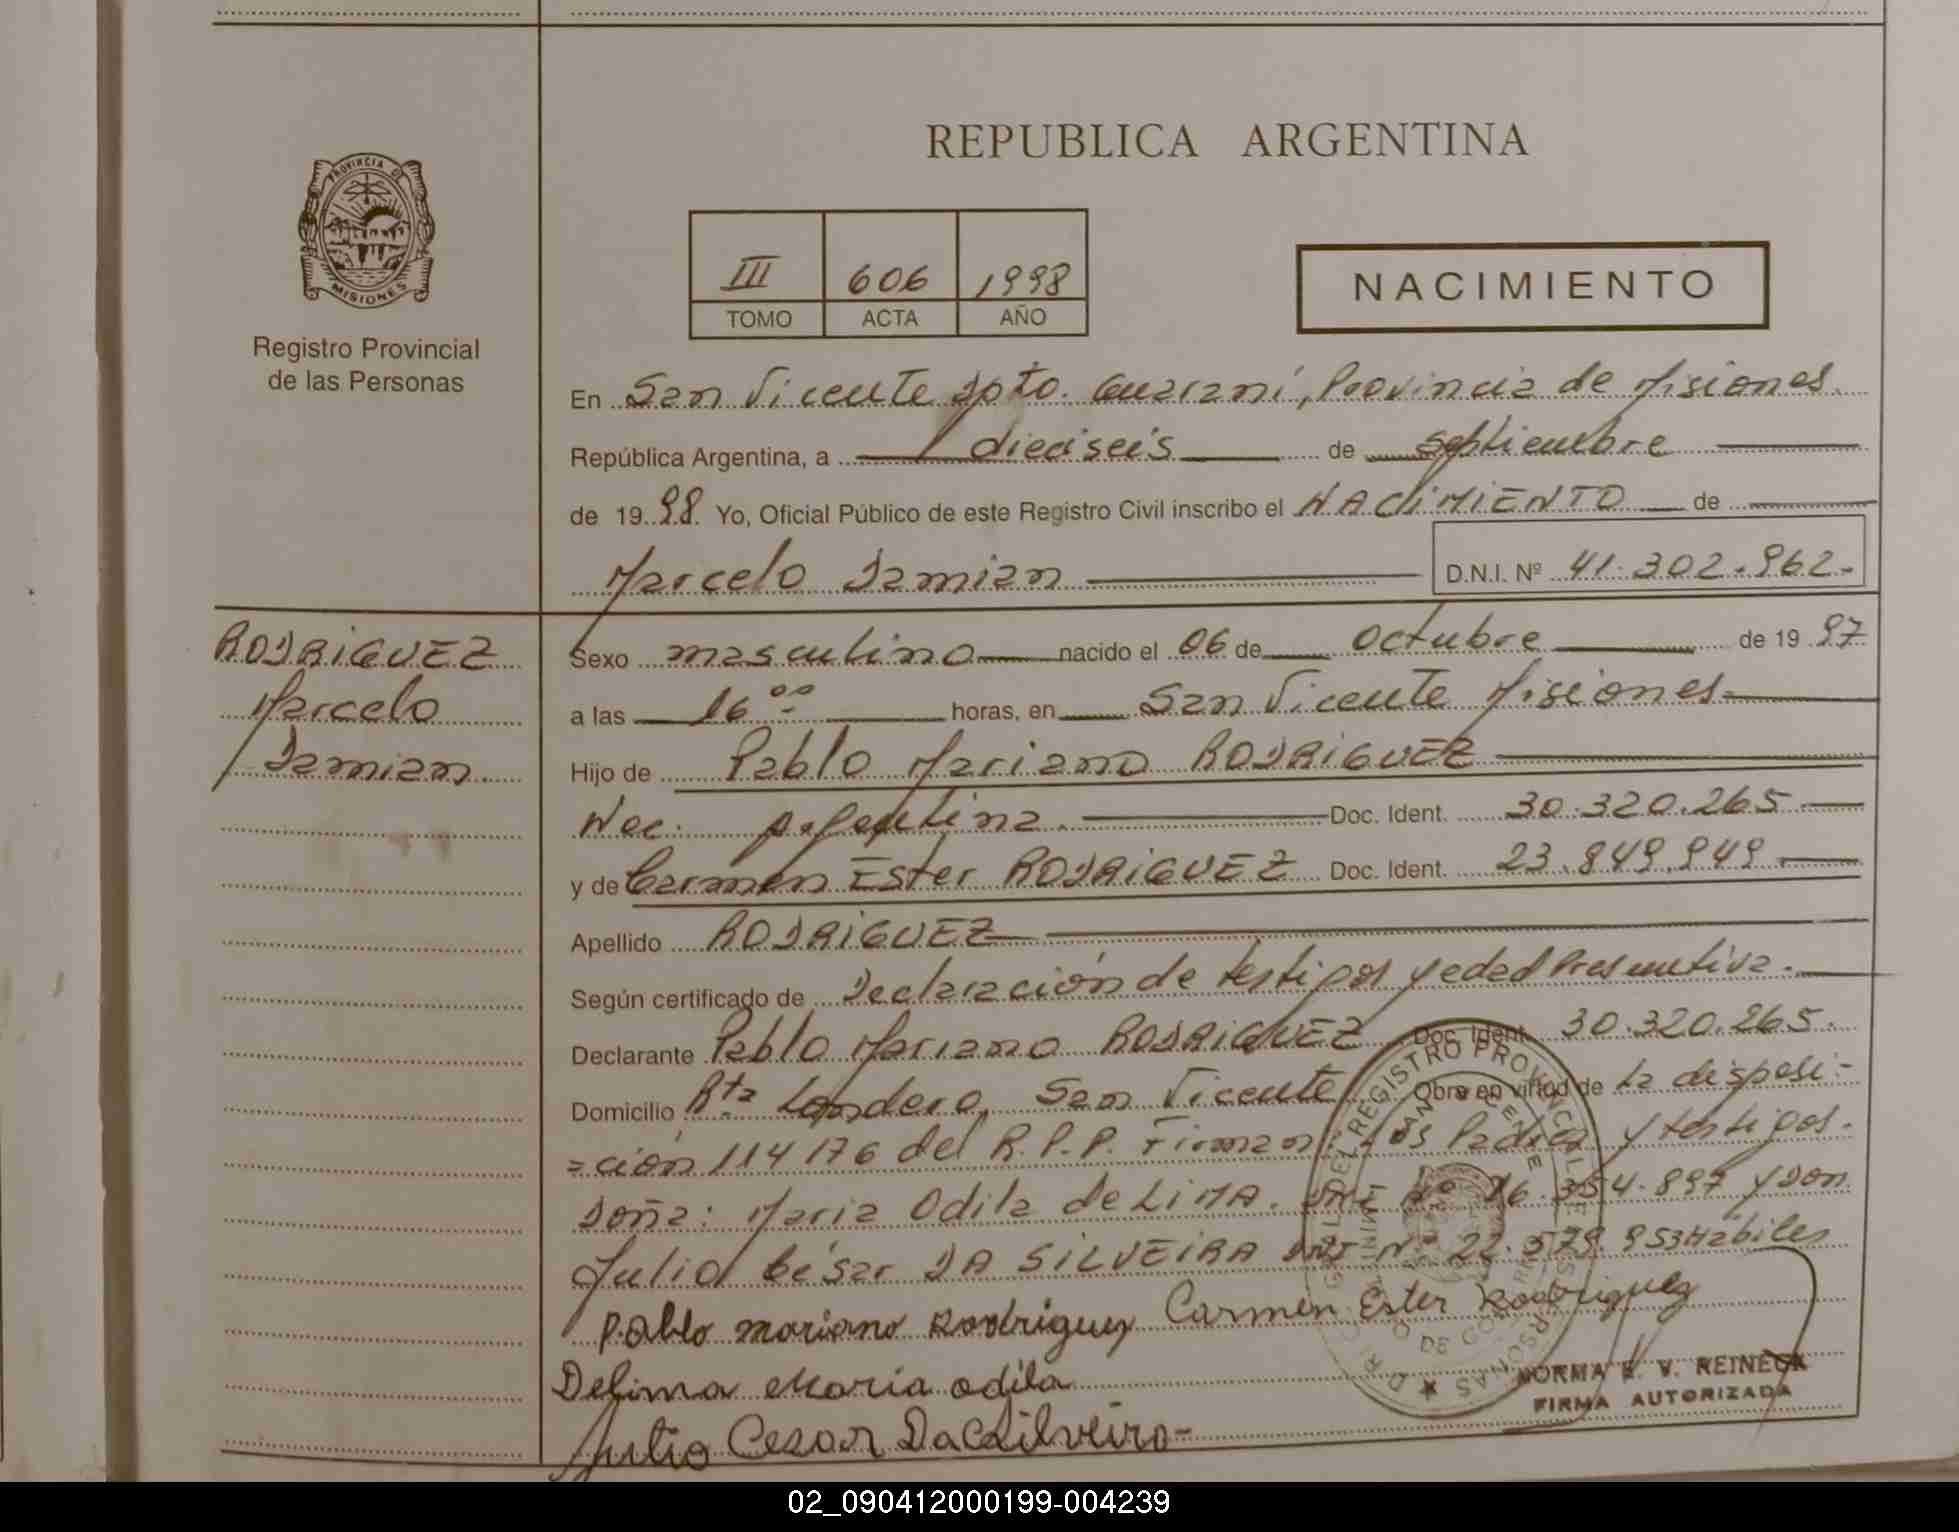 REPUBLICA ARGENTINA
PROVINCIA DE
MISIONES
Registro Provincial
de las Personas
III 606 1998
TOMO ACTA AÑO
NACIMIENTO
En San Vicente Dpto. Guaraní, Provincia de Misiones.
República Argentina, a dieciseis de septiembre
de 1998. Yo, Oficial Público de este Registro Civil inscribo el NACIMIENTO de
Marcelo Damian D.N.I. Nº 41.302.962.-
RODRIGUEZ
Marcelo
Damian
Sexo masculino nacido el 06 de Octubre de 1997
a las 16 ºº horas, en San Vicente Misiones
Hijo de Pablo Mariano RODRIGUEZ
Nac. Argentina. Doc. Ident. 30.320.265
y de Carmen Ester RODRIGUEZ Doc. Ident. 23.849.949
Apellido RODRIGUEZ
Según certificado de Declaración de testigos y edad Presuntiva.
Declarante Pablo Mariano RODRIGUEZ Doc. Ident. 30.320.265.
Domicilio Rta Londero, San Vicente Obra en virtud de La disposi-
=ción 114176 del R.P.P. Firman: Los Padres y testigos.
Doña: Maria Odila de LIMA. DNI Nº 16.354.897 y Don
Julio César DA SILVEIRA DNI Nº 22.579.953 Hábiles
Pablo mariano Rodriguez Carmen Ester Rodriguez
Delima Maria odila
Julio Cezar DaSilveira-
NORMA E. V. REINECK
FIRMA AUTORIZADA
02_090412000199-004239